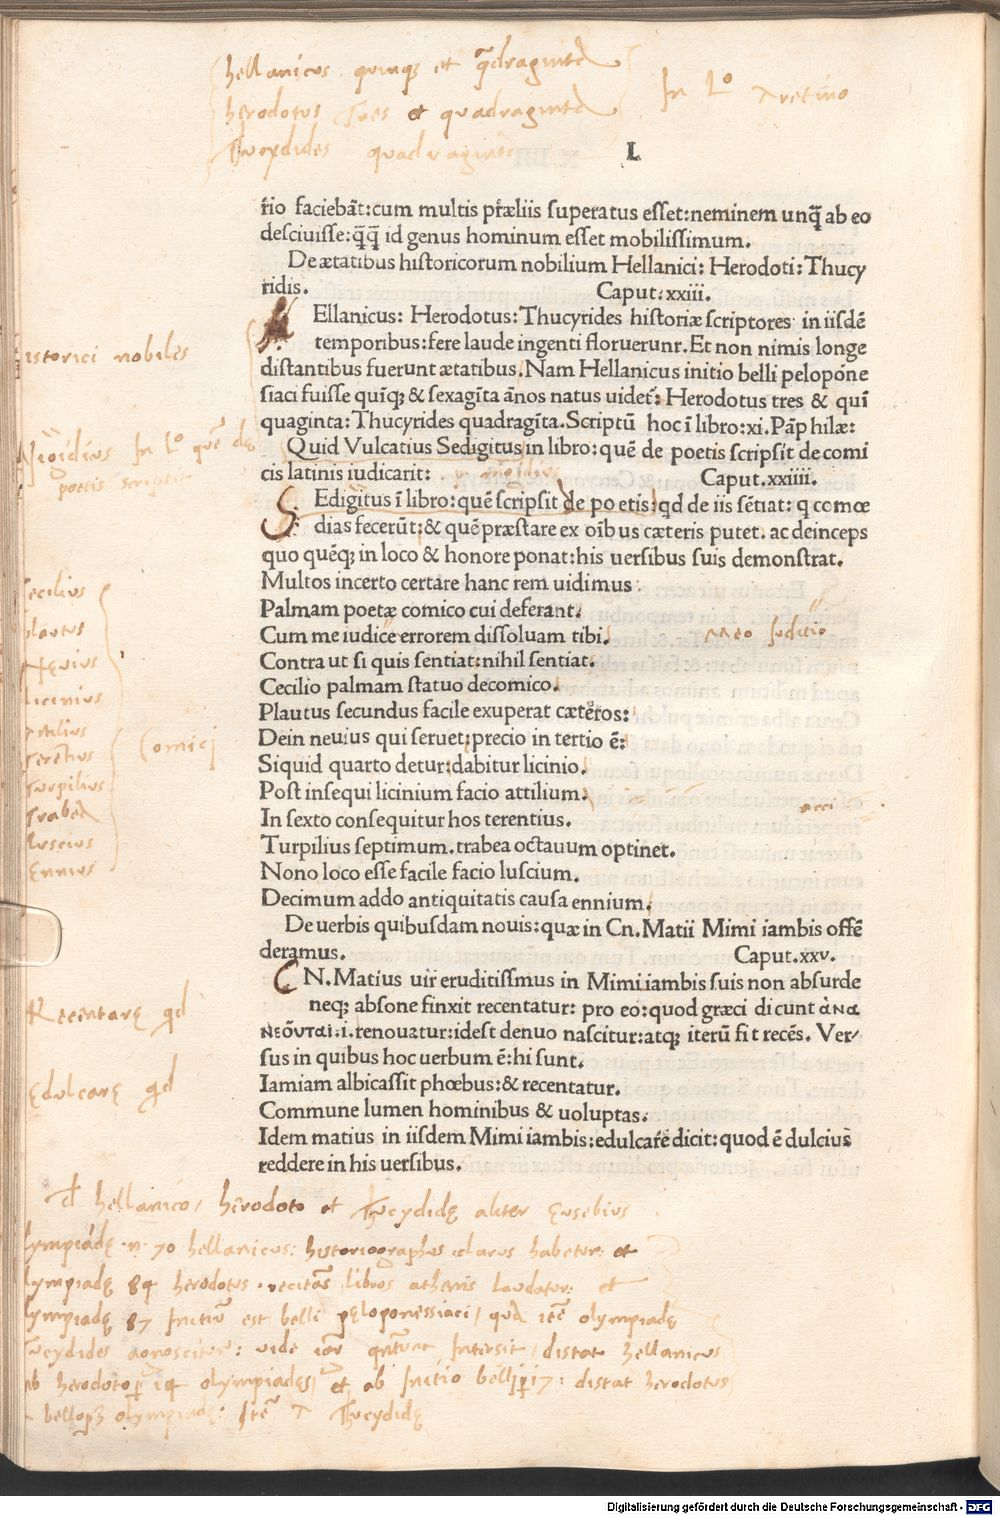 hellanicus quinq; et q̃draginta
herodotus tres et quadraginta
Thucydides quadraginta
In Lo Aretino
L
r̃io faciebãt:cum multis pr̃æliis superatus esset:neminem unq̃ ab eo
desciuisse:q̃q̃ id genus hominum esset mobilissimum.
De ætatibus historicorum nobilium Hellanici: Herodoti: Thucy
ridis. Caput.xxiii.
H Ellanicus: Herodotus: Thucyrides historiæ scriptores in iisdẽ
temporibus:fere laude ingenti floruerunr. Et non nimis longe
distantibus fuerunt ætatibus. Nam Hellanicus initio belli pelopõne
siaci fuisse quĩq; & sexagĩta ãnos natus uidet̃: Herodotus tres & quĩ
quaginta: Thucyrides quadragĩta. Scriptũ hoc ĩ libro:xi. Pãphilæ:
Quid Vulcatius Sedigitus in libro:quẽ de poetis scripsit de comi
cis latinis iudicarit: Caput.xxiiii.
S Edigitus ĩ libro:quẽ scripsit de poetis:qd de iis sẽtiat: q comœ
dias fecerũt:& quẽ præstare ex oĩbus cæteris putet. ac deinceps
quo quẽq; in loco & honore ponat:his uersibus suis demonstrat.
Multos incerto certare hanc rem uidimus:
Palmam poetæ comico cui deferant.
Cum me iudice errorem dissoluam tibi.
Contra ut si quis sentiat:nihil sentiat.
Cecilio palmam statuo decomico.
Plautus secundus facile exuperat cæteros:
Dein neuius qui feruet:precio in tertio ẽ:
Siquid quarto detur:dabitur licinio.
Post insequi licinium facio attilium.
In sexto consequitur hos terentius.
Turpilius septimum. trabea octauum optinet.
Nono loco esse facile facio luscium.
Decimum addo antiquitatis causa ennium.
De uerbis quibusdam nouis:quæ in Cn. Matii Mimi iambis offẽ
deramus. Caput.xxv.
C N. Matius uir eruditissmus in Mimi iambis suis non absurde
neq; absone finxit recentatur: pro eo:quod græci dicunt ἀνα
νεοῦται:i. renouatur:idest denuo nascitur:atq; iterũ fit recẽs. Ver/
sus in quibus hoc uerbum ẽ:hi sunt.
Iamiam albicassit phœbus:& recentatur.
Commune lumen hominibus & uoluptas.
Idem matius in iisdem Mimi iambis:edulcar̃e dicit:quod ẽ dulcius
reddere in his uersibus.
istorici nobiles
Nigidius In Lo quẽ de
poetis scripsit
Meo Juditio
Cecilius
plautus
Neuius
Licinius
Attilius
Terentius
Turpilius
Trabea
Luscius
Ennius
Comici
acci
Recentare qd
Edulcare qd
d hellanico/ herodoto et Thucydide aliter Eusebius
lympiade .n. 70 hellanicus: historiographus clarus habetur: et
lympiade 84 herodotus recitãs libros athenis laudatur: et
lympiade 87 Initiũ est belli peloponessiaci/ qua itẽ olympiade
Thucydides agnoscitur: uide intersit/ distat hellanicus
ab herodoto olympiades/ et ab Initio belli: distat herodotus
bello olympiade: Itẽ A Thucydide
Digitalisierung gefördert durch die Deutsche Forschungsgemeinschaft - DFG